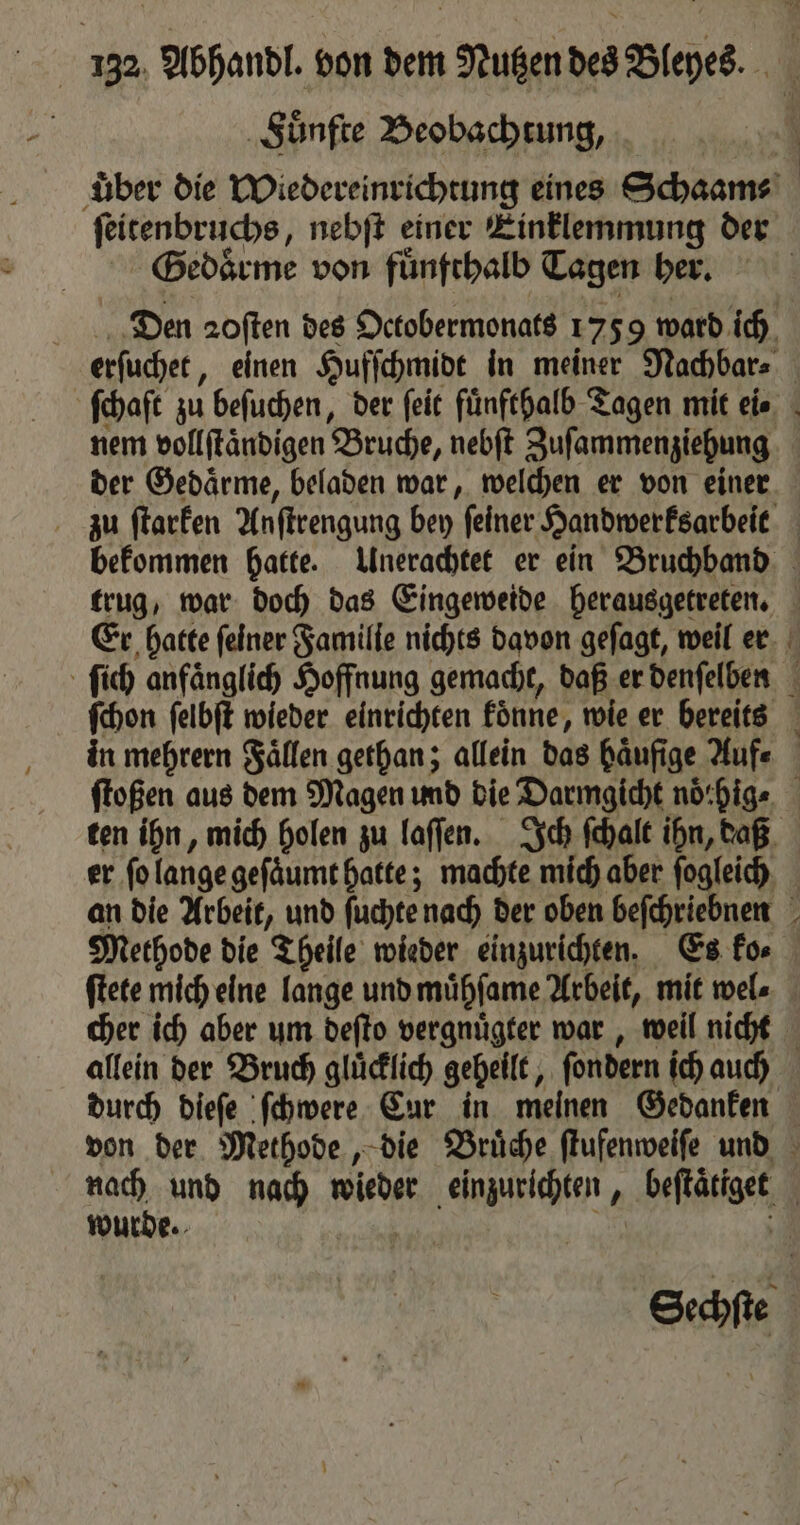 132 Abhandl. von dem Nutzen des Bleyes.
Fuͤnfte Beobachtung,
uͤber die Wiedereinrichtung eines Schaam⸗
ſeitenbruchs, nebſt einer Einklemmung der
Gedaͤrme von fuͤnfthalb Tagen her.
Den 20ſten des Octobermonats 1759 ward ich
erſuchet, einen Hufſchmidt in meiner Nachbar⸗
ſchaft zu beſuchen, der ſeit fuͤnfthalb Tagen mit ei⸗
nem vollſtaͤndigen Bruche, nebſt Zuſammenziehung
der Gedaͤrme, beladen war, welchen er von einer
zu ſtarken Anſtrengung bey ſeiner Handwerksarbeit
bekommen hatte. Unerachtet er ein Bruchband
trug, war doch das Eingeweide herausgetreten.
Er hatte ſeiner Familie nichts davon geſagt, weil er
ſich anfaͤnglich Hoffnung gemacht, daß er denſelben
ſchon ſelbſt wieder einrichten koͤnne, wie er bereits
in mehrern Faͤllen gethan; allein das haͤufige Auf⸗
ſtoßen aus dem Magen und die Darmgicht noͤthig⸗
ten ihn, mich holen zu laſſen. Ich ſchalt ihn, daß
er ſo lange geſaͤumt hatte; machte mich aber ſogleich
an die Arbeit, und ſuchte nach der oben beſchriebnen
Methode die Theile wieder einzurichten. Es ko⸗
ſtete mich eine lange und muͤhſame Arbeit, mit wel⸗
cher ich aber um deſto vergnuͤgter war, weil nicht
allein der Bruch gluͤcklich geheilt, ſondern ich auch
durch dieſe ſchwere Cur in meinen Gedanken
von der Methode, die Bruͤche ſtufenweiſe und
nach und nach wieder einzurichten, beſtaͤtiget
wurde.
Sechſte